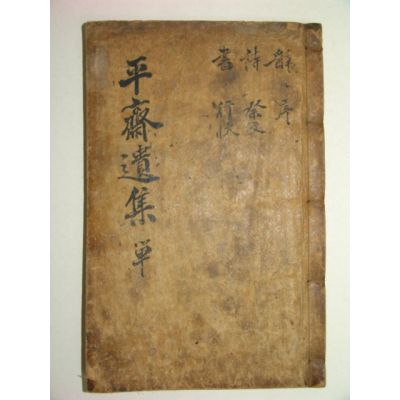 平齋遺集 単
序
詩 祭文
書 行狀